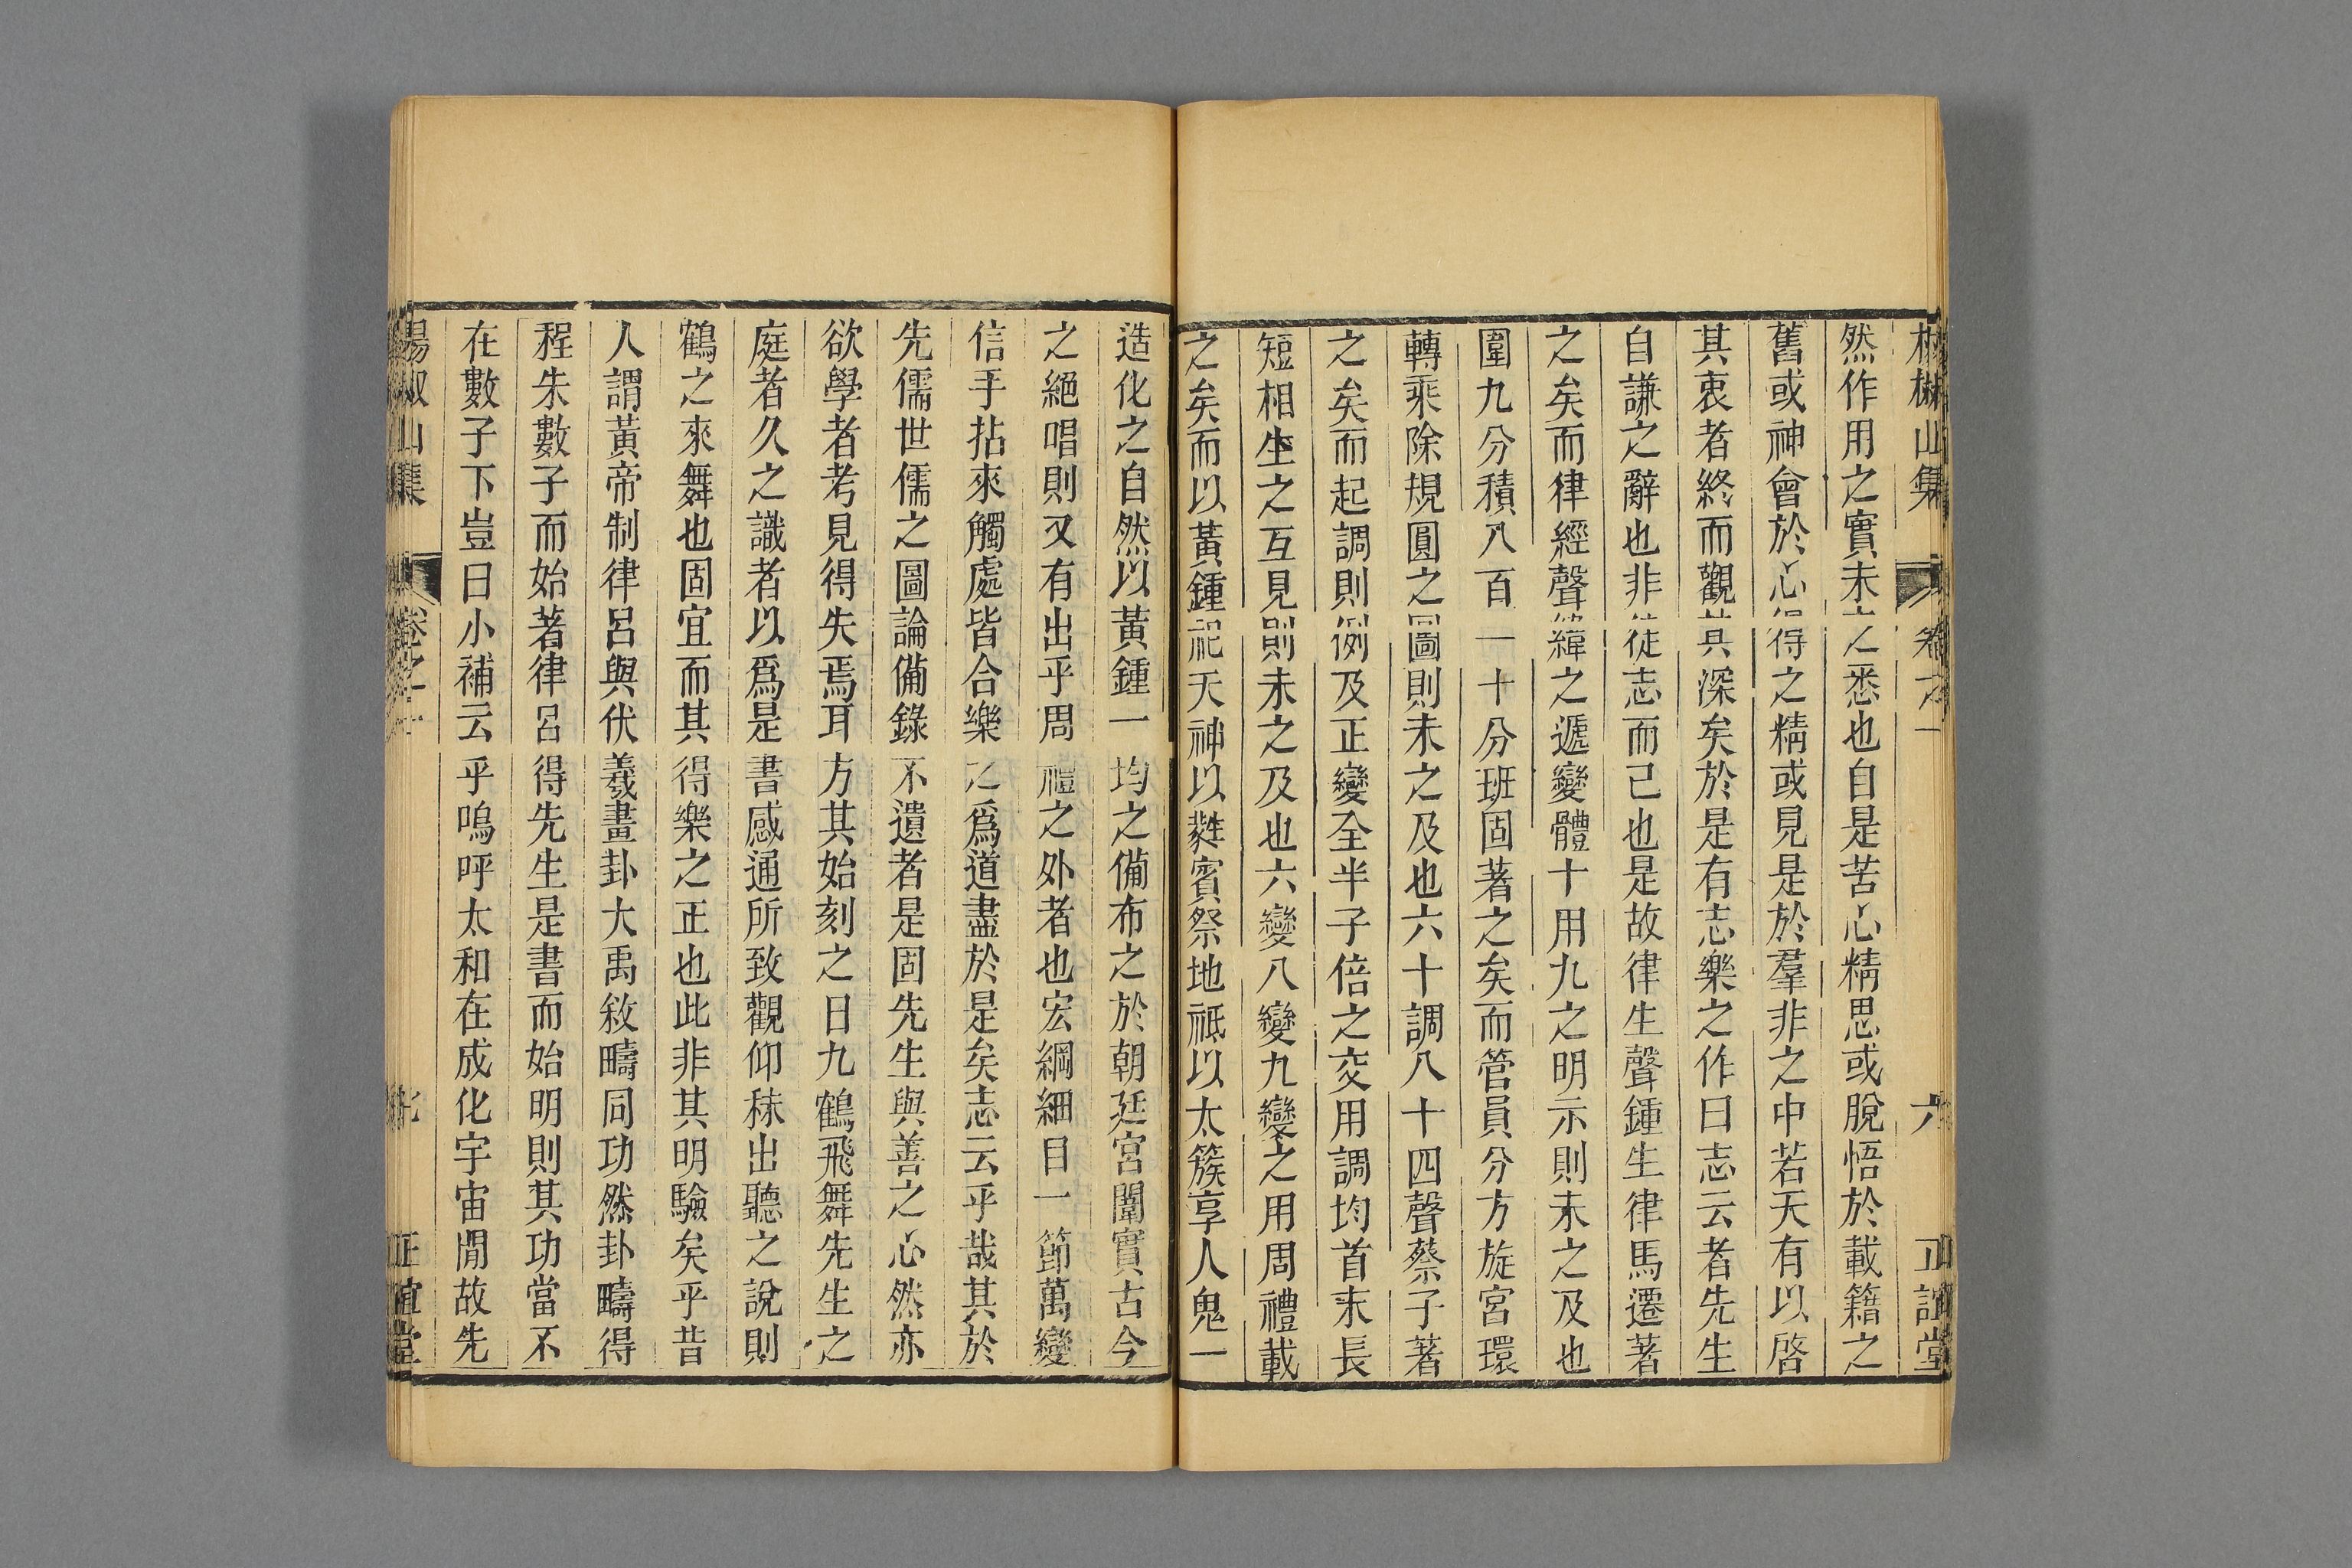 然作用之實未之悉也自是苦心精思或脫悟於載籍之
舊或神會於心得之精或見是於羣非之中若天有以啓
其衷者終而觀其深矣於是有志樂之作曰志云者先生
自謙之辭也非徒志而已也是故律生聲鍾生律馬遷著
之矣而律經聲緯之遞變體十用九之明示則未之及也
圍九分積八百一十分班固著之矣而管員分方旋宮環
轉乘除規圓之圖則未之及也六十調八十四聲蔡子著
之矣而起調則例及正變全半子倍之交用調均首末長
短相生之互見則未之及也六變八變九變之用周禮載
之矣而以黃鍾祀天神以蕤賓祭地祗以太簇享人鬼一
造化之自然以黃鍾一均之備布之於朝廷宮闈實古今
之絕唱則又有出乎周禮之外者也宏綱細目一節萬變
信手拈來觸處皆合樂之爲道盡於是矣志云乎哉其於
先儒世儒之圖論備錄不遺者是固先生與善之心然亦
欲學者考見得失焉耳方其始刻之日九鶴飛舞先生之
庭者久之識者以爲是書感通所致觀仰秣出聽之說則
鶴之來舞也固宜而其得樂之正也此非其明驗矣乎昔
人謂黃帝制律呂與伏羲畫卦大禹敘疇同功然卦疇得
程朱數子而始著律呂得先生是書而始明則其功當不
在數子下豈曰小補云乎嗚呼太和在成化宇宙間故先
楊椒山集 卷之一 正誼堂